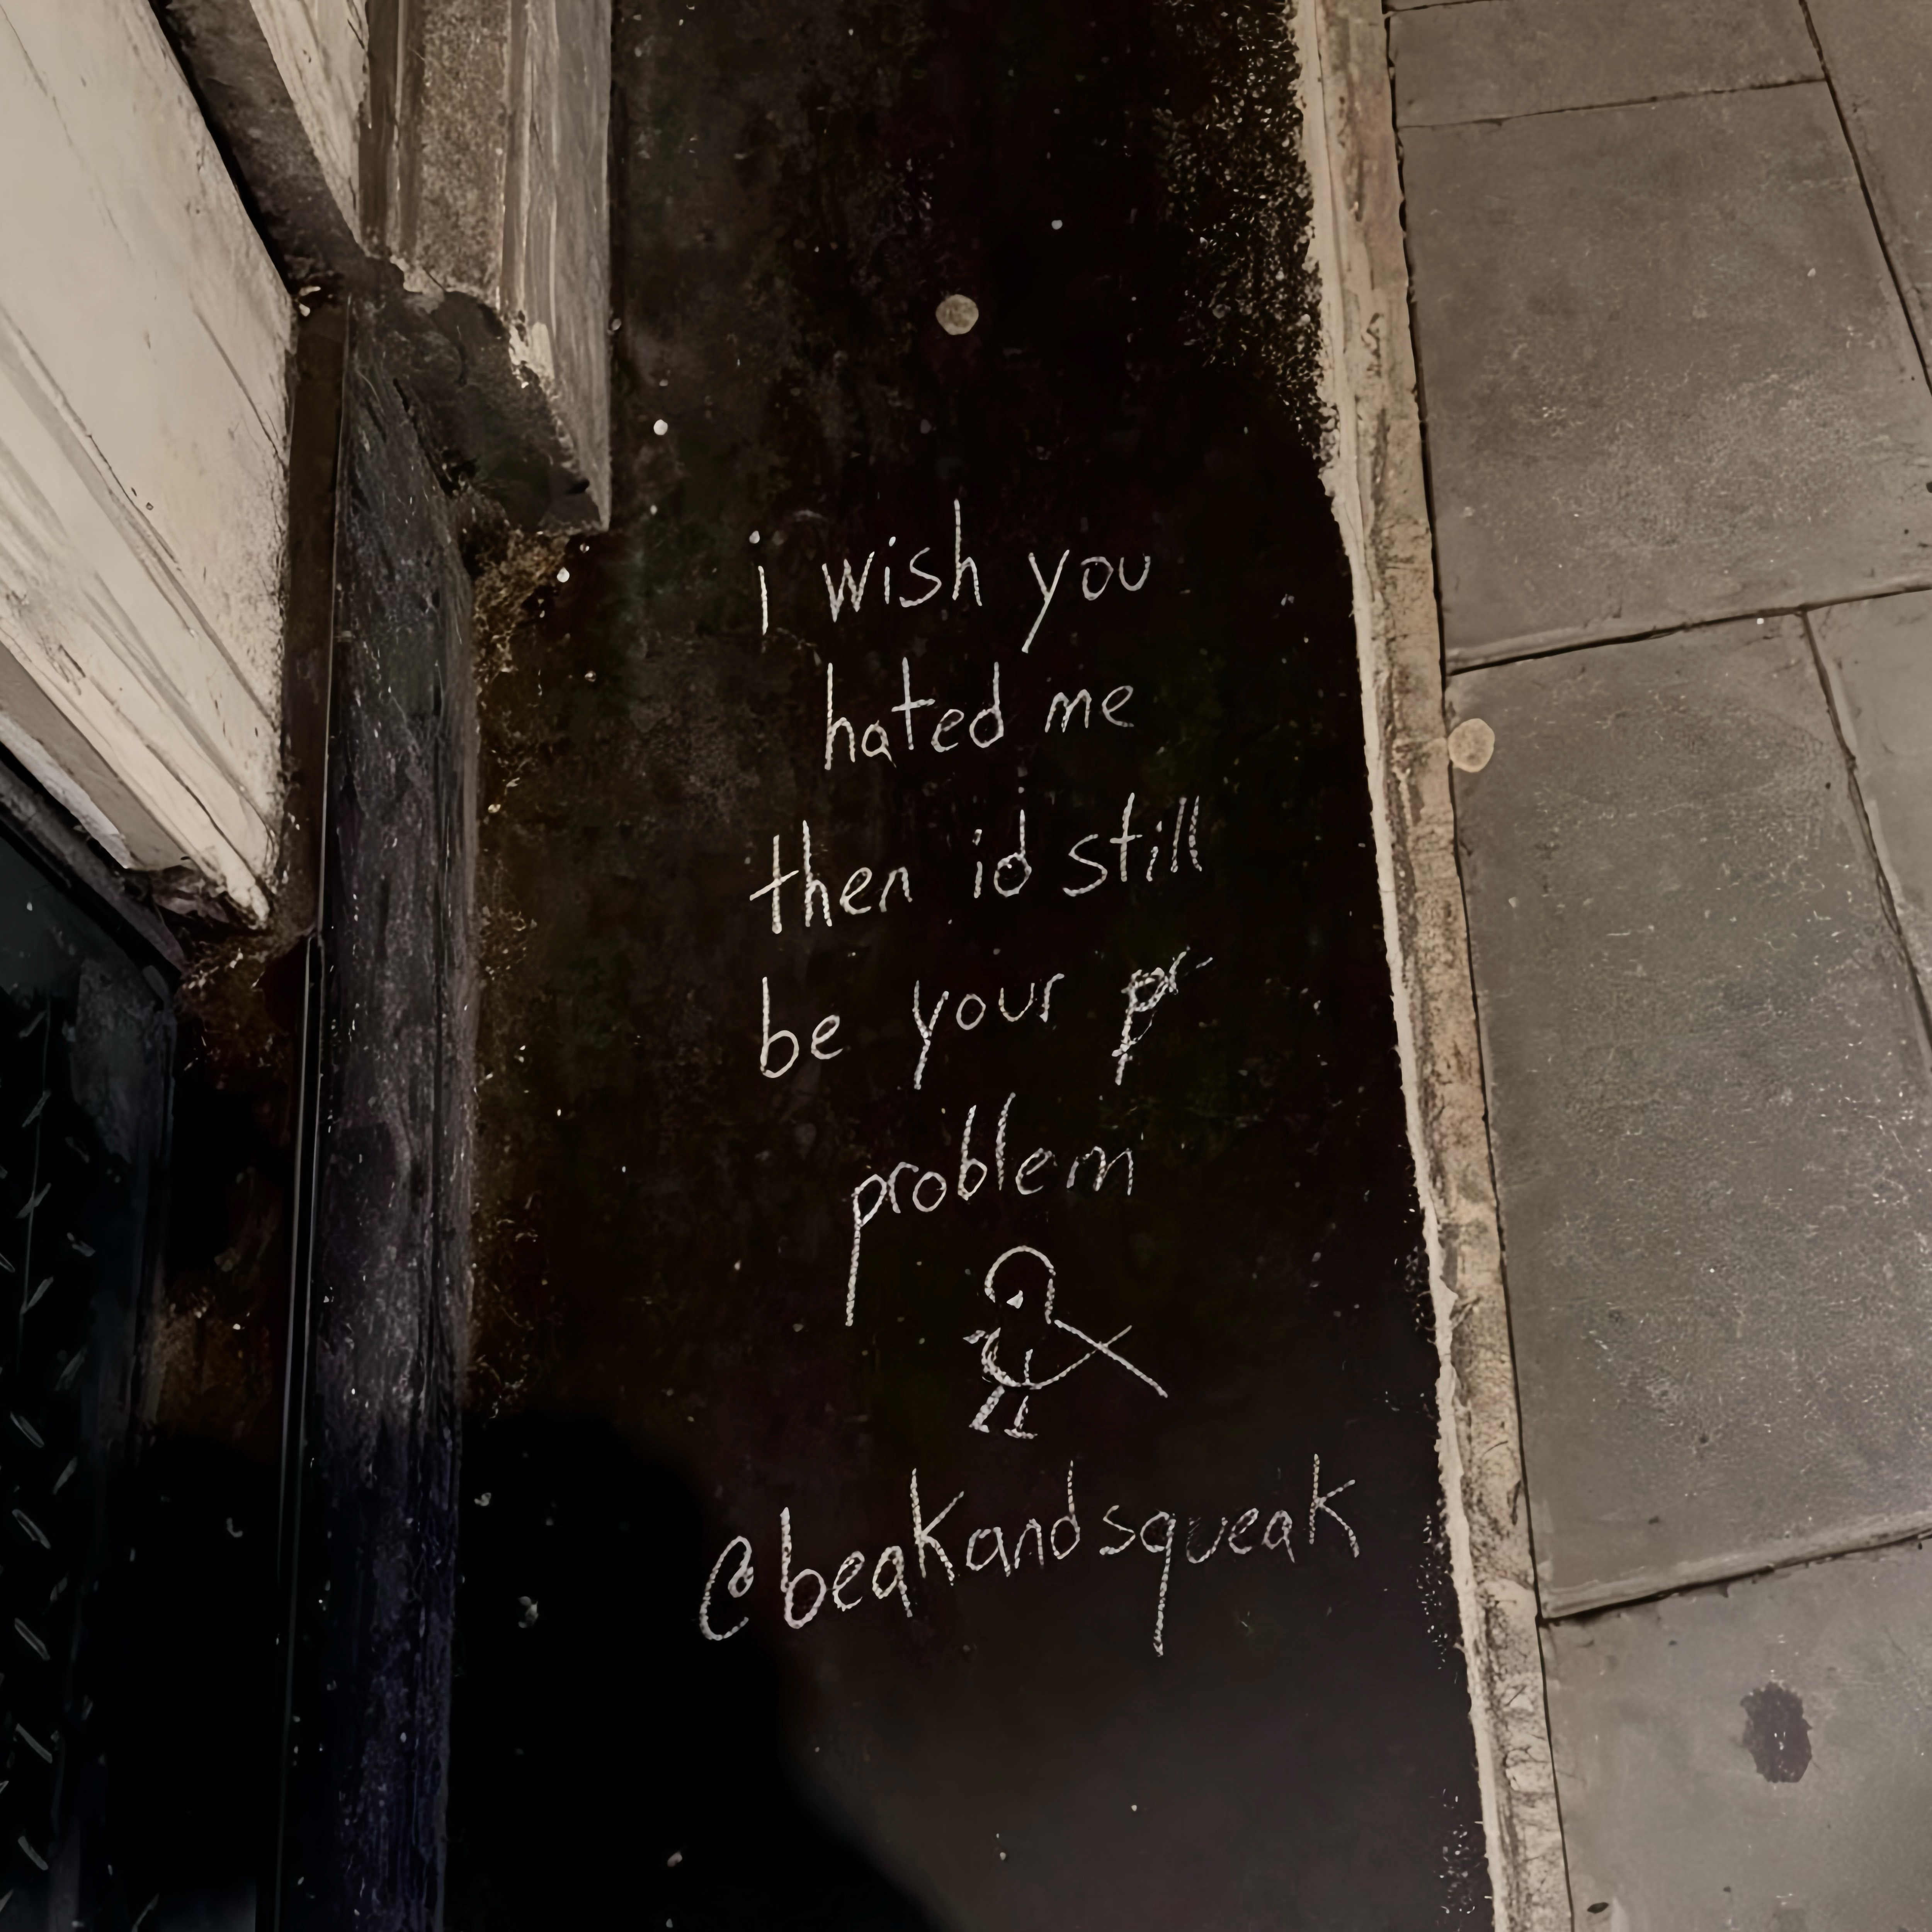 i wish you
hated me
then id still
be your pr
problem
@beakandsqueak